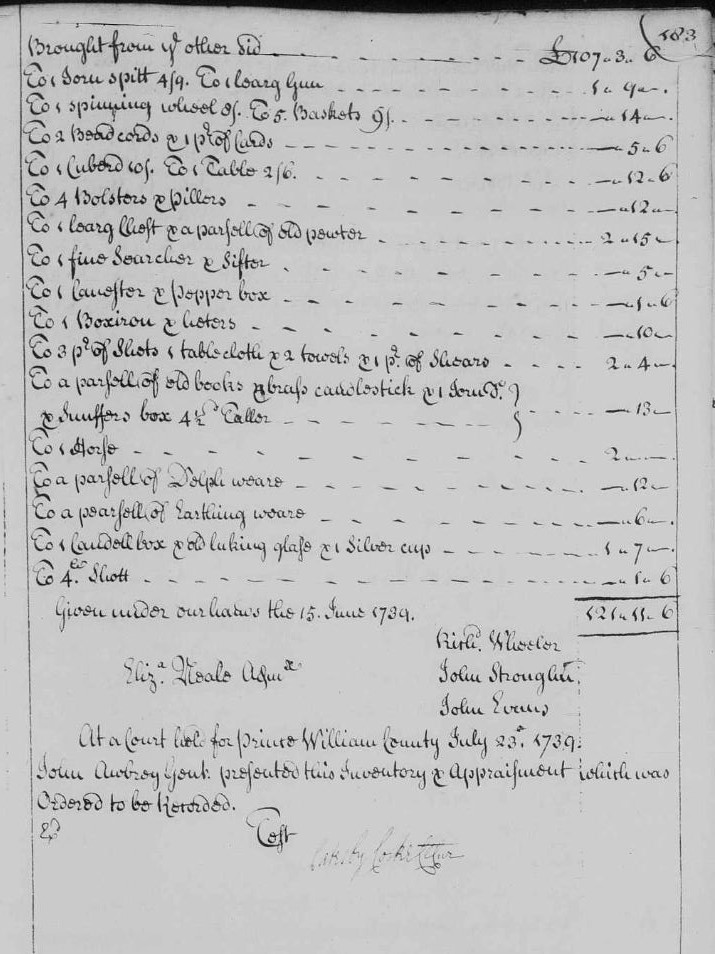 183
Brought from ye other Sid £107 " 3 " 6
To 1 Iorn spitt 4/9. To 1 learg Gun 1 " 9 " .
To 1 spinning wheel 5/. To 5 Baskets 9/. — " 14 " — .
To 2 Bead cords & 1 pr. of Cards — " 5 " 6
To 1 Cuberd 10/. To 1 Table 2/6. — " 12 " 6
To 4 Bolsters & pillers — " 12 " — .
To 1 learg Chest & a parsell of old pewter 2 " 15 " —
To 1 fine Searcher & Sifter — " 5 " — .
To 1 Canester & Pepper box — " 1 " 6
To 1 Boxiron & heters — " 10 " — .
To 3 pr. of Shets 1 table cloth & 2 towels & 1 pr. of Shears 2 " 4 " — .
To a parsell of old books & brass candlestick & 1 Iorn Do.
& Snuffers box 4½ Taller — " 13 " —
To 1 Horse 2 " — " — .
To a parsell of Delph weare — " 12 " —
To a pearsell of Earthing weare — " 6 " — .
To 1 Candell box & old luking glass & 1 Silver cup 1 " 7 " — .
To 4 Shott — " 1 " 6
Given under our hands the 15. June 1739. 121 " 11 " 6
Richd. Wheeler
Eliza. Neale Admx
John Stroughin
John Evans
At a Court held for Prince William County July 23d. 1739.
John Awbrey Gent. presented this Inventory & Appraisment which was
Ordered to be Recorded.
Test
Catesby Cocke Cl Cur